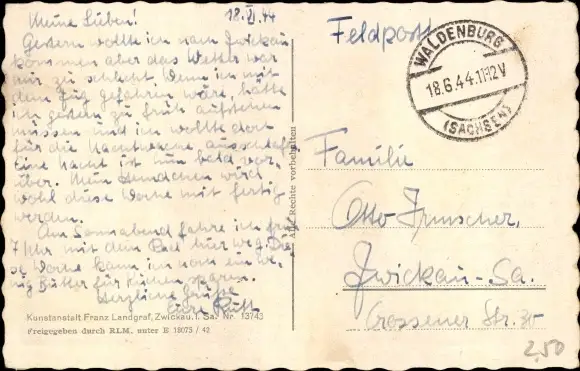 Meine Lieben! 18.VI.44
Gestern wollte ich nach Zwickau
kommen aber das Wetter war
mir zu schlecht. Wenn ich mit
dem Zug gefahren wäre, hätte
ich gestern zu früh aufstehen
müssen und ich wollte doch
für die Nachtwache, ausschlafen
Eine Nacht ist nun bald vor-
über. Mein Hemdchen wird
wohl diese Woche mit fertig
werden.
Am Sonnabend fahre ich früh
7 Uhr mit dem Rad hier weg. Die-
se Woche kann ich noch ein we-
nig Butter für Kuchen sparen.
Herzliche Grüße
Eure Ruth
Kunstanstalt Franz Landgraf, Zwickau i. Sa. Nr. 13743
Freigegeben durch RLM. unter B 18075 / 42
Alle Rechte vorbehalten
Feldpost
WALDENBURG
18.6.44.11-12V
(SACHSEN)
Familie
Otto Irmscher,
Zwickau-Sa.
Crossener Str. 35
2,50